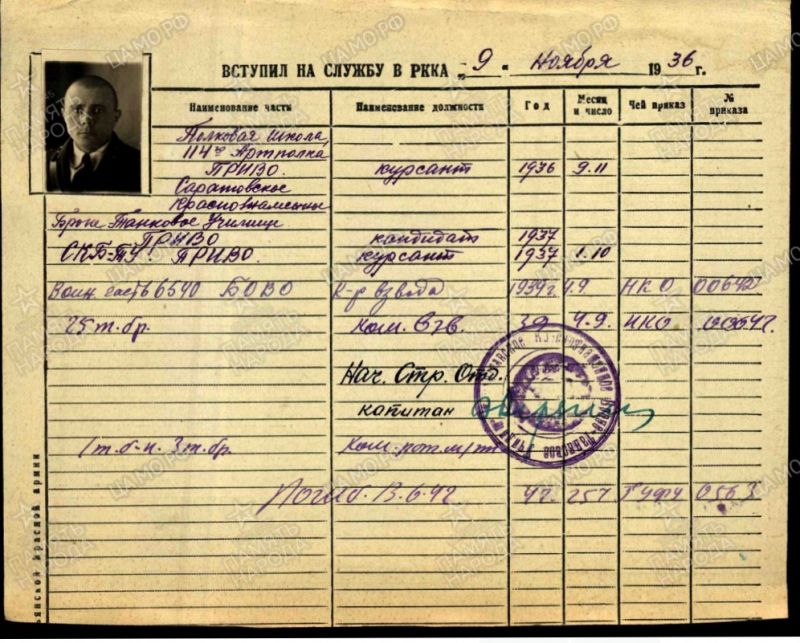 ВСТУПИЛ НА СЛУЖБУ В РККА „9“ Ноября 1936 г.
Наименование части Наименование должности Год Месяц и число Чей приказ № приказа
Полковая школа
114го Артполка
ПРИВО. курсант 1936 9.11
Саратовское
Краснознаменное
Танковое Училище
ПРИВО кандидат 1937
СКБ-ТУ ПРИВО. курсант 1937 1.10
Воин. часть 6540 БОВО К-р взвода 1939г. 4.9 НКО 00642
25 т. бр. Ком. Взв. 39 4.9. НКО
Нач. Стр. Отд.
капитан
1 т. б-н. 3 т. бр. Ком. рот.
Погиб. 13.6.42 42. 257 0563
ЦАМО.РФ
ПАМЯТЬ НАРОДА